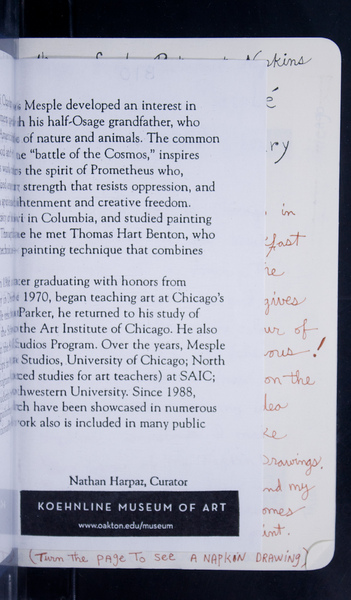 Napkins
é
ry
Mesple developed an interest in
his half-Osage grandfather, who
of nature and animals. The common
"battle of the Cosmos," inspires
the spirit of Prometheus who,
strength that resists oppression, and
htenment and creative freedom.
in Columbia, and studied painting
he met Thomas Hart Benton, who
painting technique that combines
in
fast
he
gives
ur of
ous!
on the
dea
ke
Drawings.
nd my
omes
int.
er graduating with honors from
1970, began teaching art at Chicago's
Parker, he returned to his study of
the Art Institute of Chicago. He also
udios Program. Over the years, Mesple
Studios, University of Chicago; North
ced studies for art teachers) at SAIC;
hwestern University. Since 1988,
ch have been showcased in numerous
ork also is included in many public
Nathan Harpaz, Curator
KOEHNLINE MUSEUM OF ART
www.oakton.edu/museum
(Turn the page to see a NAPKIN DRAWING)